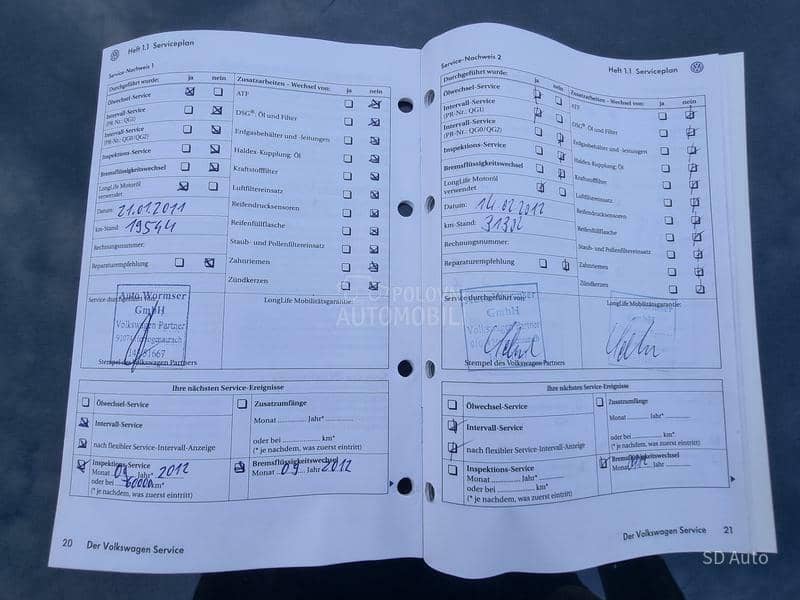 Heft 1.1 Serviceplan
Service-Nachweis 1
Durchgeführt wurde: ja nein
Ölwechsel-Service
Intervall-Service
(PR-Nr.: QG1)
Intervall-Service
(PR-Nr.: QG0/QG2)
Inspektions-Service
Bremsflüssigkeitswechsel
LongLife Motoröl
verwendet
Datum: 21.01.2011
km-Stand: 19544
Rechnungsnummer:
Reparaturempfehlung
Zusatzarbeiten - Wechsel von: ja nein
ATF
DSG®: Öl und Filter
Erdgasbehälter und -leitungen
Haldex-Kupplung: Öl
Kraftstofffilter
Luftfiltereinsatz
Reifendrucksensoren
Reifenfüllflasche
Staub- und Pollenfiltereinsatz
Zahnriemen
Zündkerzen
Service durchgeführt von:
LongLife Mobilitätsgarantie:
Auto Wormser
GmbH
Volkswagen Partner
Stempel des Volkswagen Partners
Ihre nächsten Service-Ereignisse
Ölwechsel-Service
Intervall-Service
nach flexibler Service-Intervall-Anzeige
Inspektions-Service
Monat 09 Jahr* 2012
oder bei 60000 km*
(* je nachdem, was zuerst eintritt)
Zusatzumfänge
Monat Jahr*
oder bei km*
(* je nachdem, was zuerst eintritt)
Bremsflüssigkeitswechsel
Monat 09 Jahr 2012
20 Der Volkswagen Service
Service-Nachweis 2
Heft 1.1 Serviceplan
Durchgeführt wurde: ja nein
Ölwechsel-Service
Intervall-Service
(PR-Nr.: QG1)
Intervall-Service
(PR-Nr.: QG0/QG2)
Inspektions-Service
Bremsflüssigkeitswechsel
LongLife Motoröl
verwendet
Datum: 14.02.2012
km-Stand:
Rechnungsnummer:
Reparaturempfehlung
Zusatzarbeiten - Wechsel von: ja nein
ATF
DSG®: Öl und Filter
Erdgasbehälter und -leitungen
Haldex-Kupplung: Öl
Kraftstofffilter
Luftfiltereinsatz
Reifendrucksensoren
Reifenfüllflasche
Staub- und Pollenfiltereinsatz
Zahnriemen
Zündkerzen
Service durchgeführt von:
LongLife Mobilitätsgarantie:
GmbH
Volkswagen Partner
Stempel des Volkswagen Partners
Ihre nächsten Service-Ereignisse
Ölwechsel-Service
Intervall-Service
nach flexibler Service-Intervall-Anzeige
Inspektions-Service
Monat Jahr*
oder bei km*
(* je nachdem, was zuerst eintritt)
Zusatzumfänge
Monat Jahr*
oder bei km*
(* je nachdem, was zuerst eintritt)
Bremsflüssigkeitswechsel
Monat Jahr
Der Volkswagen Service 21
POLOVNI
AUTOMOBILI
SD Auto